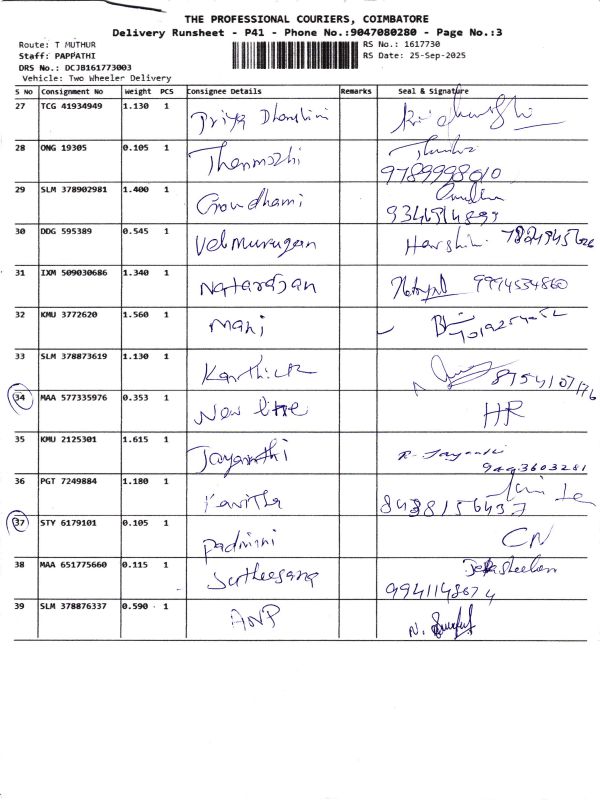 THE PROFESSIONAL COURIERS, COIMBATORE
Delivery Runsheet - P41 - Phone No.:9047080280 - Page No.:3
Route: T MUTHUR RS No.: 1617730
Staff: PAPPATHI RS Date: 25-Sep-2025
DRS No.: DCJB161773003
Vehicle: Two Wheeler Delivery
S No Consignment No Weight PCS Consignee Details Remarks Seal & Signature
27 TCG 41934949 1.130 1 Priya Dharshini
28 ONG 19305 0.105 1 Thenmozhi
9789998010
29 SLM 378902981 1.400 1 Gowdhami
30 DDG 595389 0.545 1 Velmurugan Harshini
31 IXM 509030686 1.340 1 Natarajan 9994534860
32 KMU 3772620 1.560 1 Mani
33 SLM 378873619 1.130 1 Karthick 8754107176
34 MAA 577335976 0.353 1 New line HR
35 KMU 2125301 1.615 1 Jayanthi R. Jayanthi
9443603281
36 PGT 7249884 1.180 1 Kavitha
8438156437
37 STY 6179101 0.105 1 Padmini CN
38 MAA 651775660 0.115 1
9941148674
39 SLM 378876337 0.590 1 ANP N.